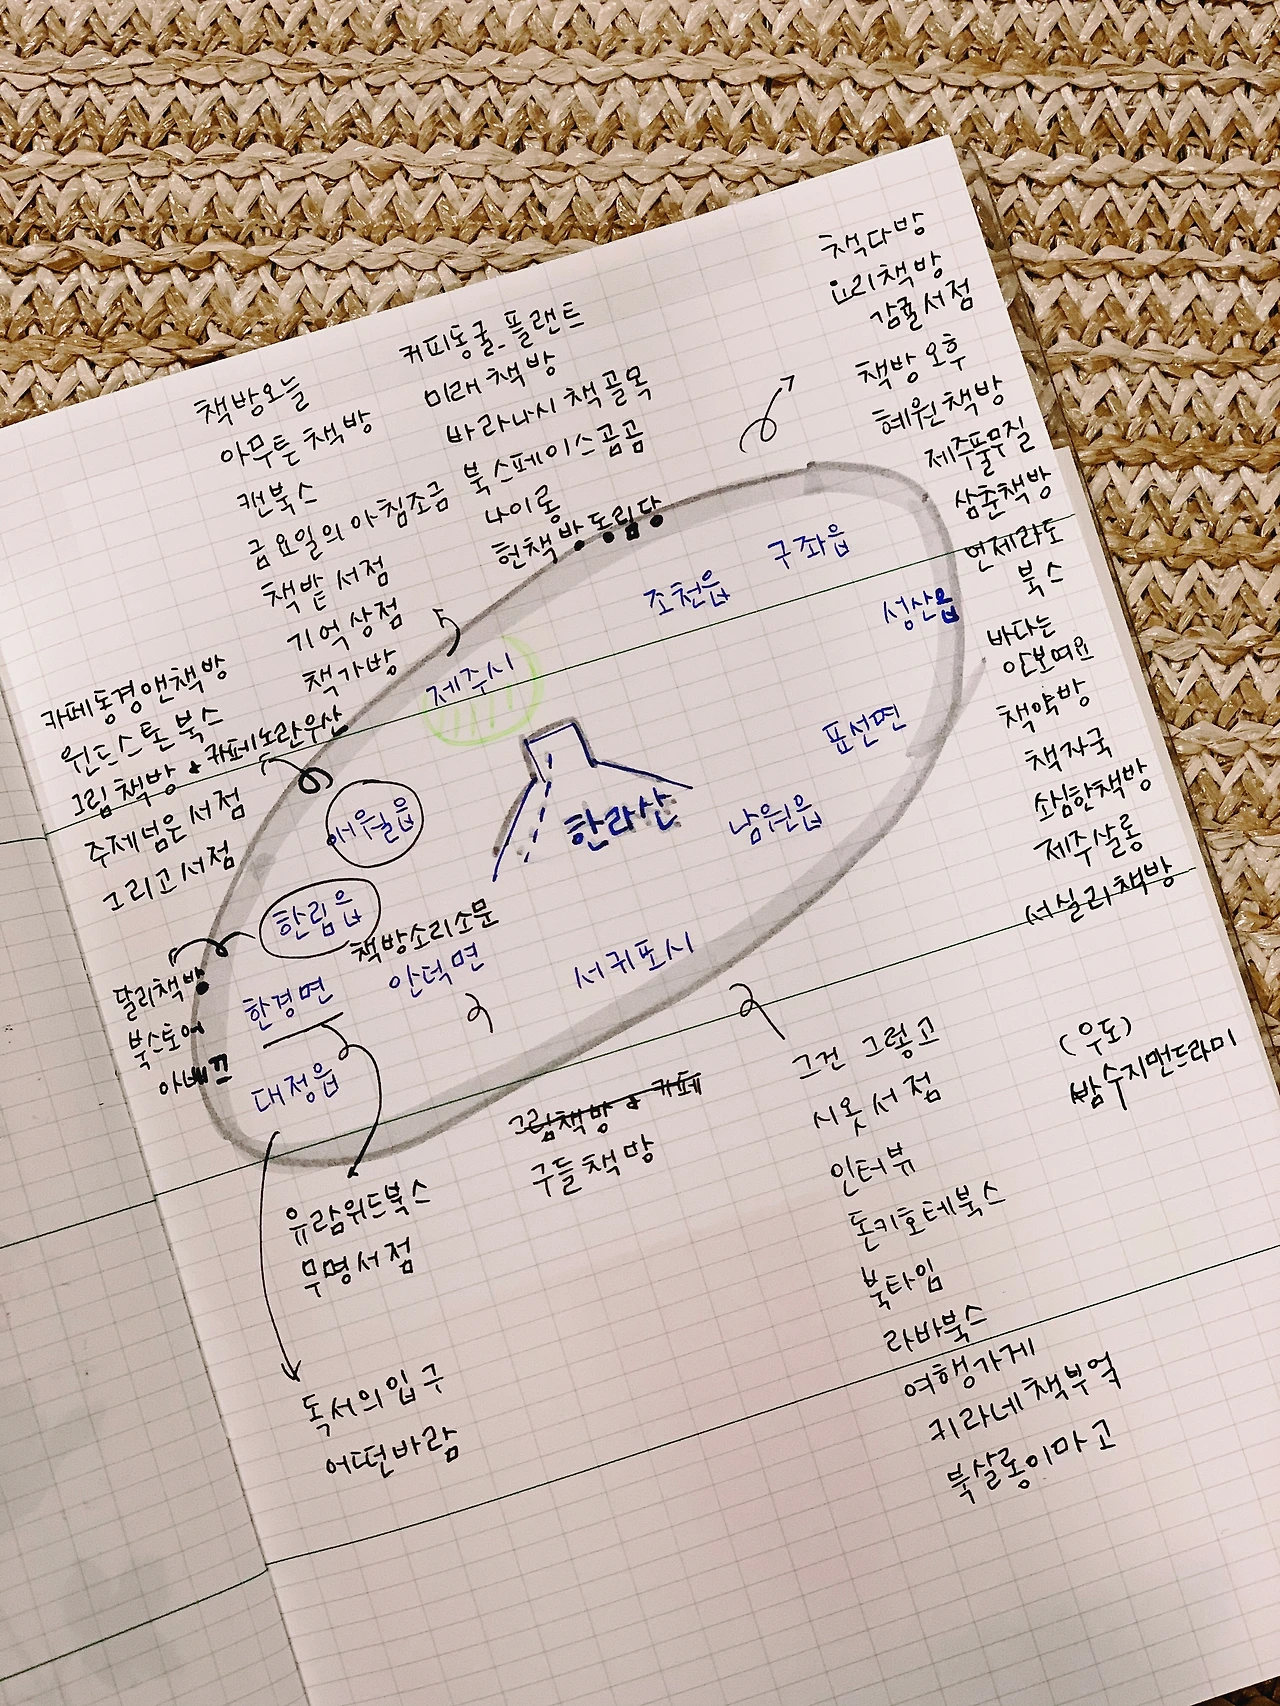 책방오늘
아무튼 책방
캔북스
금요일의 아침조금
책밭 서점
기억상점
책가방
커피동굴_플랜트
미래 책방
바라나시 책골목
북스페이스곰곰
나이롱
헌책방 동림당
책다방
요리책방
감귤서점
책방오후
혜원책방
제주풀무질
삼춘책방
언제라도
북스
바다는
안보여요
책약방
책자국
소심한책방
제주살롱
서실리책방
카페동경앤책방
윈드스톤 북스
그림책방 & 카페노란우산
주제넘은 서점
그리고서점
제주시
조천읍
구좌읍
성산읍
표선면
남원읍
한라산
애월읍
한림읍
책방소리소문
안덕면
서귀포시
한경면
대정읍
달리책방
북스토어
아베끄
유람위드북스
무명서점
독서의입구
어떤바람
그림책방 & 카페
구들책방
그건 그렇고
시옷서점
인터뷰
돈키호테북스
북타임
라바북스
여행가게
키라네 책부엌
북살롱이마고
(우도)
밤수지맨드라미